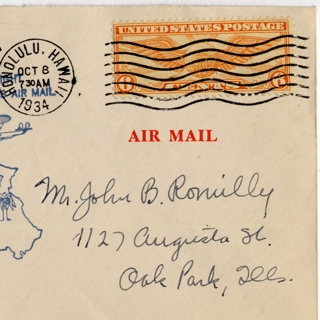 HONOLULU, HAWAII
OCT 8
1934
UNITED STATES POSTAGE
AIR MAIL
AIR MAIL
Mr. John B. Romilly
1127 Augusta St.
Oak Park, Ills.